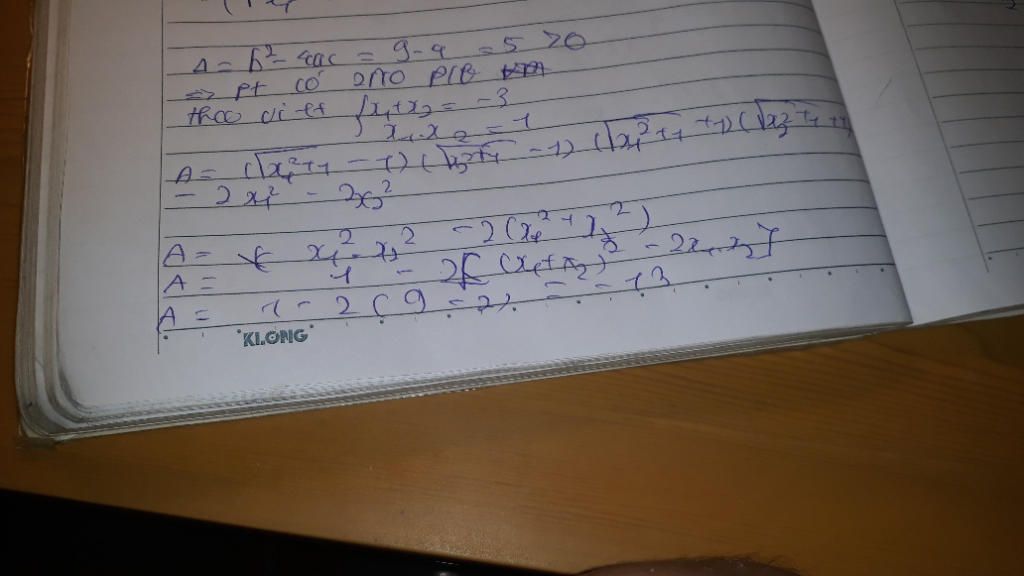 Δ = b² - 4ac = 9 - 4 = 5 > 0
=> pt có 2NO PIB
theo vi-ét { x₁ + x₂ = -3
x₁ . x₂ = 1
A = (√x₁²+1 - 1) (√x₂²+1 - 1) (√x₁²+1 + 1) (√x₂²+1 + 1)
- 2x₁² - 2x₂²
A = x₁² . x₂² - 2(x₁² + x₂²)
A = 1 - 2[(x₁+x₂)² - 2x₁.x₂]
A = 1 - 2(9 - 2) = -13
KLONG